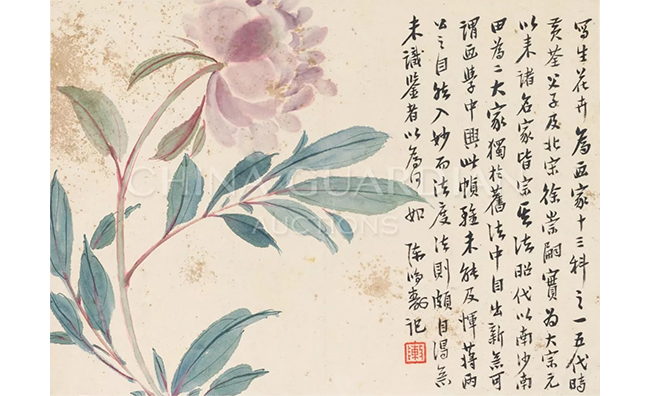 寫生花卉為画家十三科之一五代時
黃荃父子及北宋徐崇嗣實为大宗元
以来諸名家皆宗其法昭代以南沙南
田為二大家獨於舊法中自出新意可
謂画學中興此幀雖未能及惲蔣兩
公之自然入妙而法度法則頗自竭矣
未識鑒者以為何如 陈 記
CHINA GUARDIAN
AUCTIONS